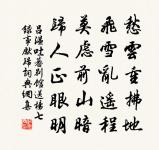 愁雲重拂地
飛雪亂遙程
莫慮前山暗
歸人正眼明
呂溫吐蕃別館送楊七
錄事歸詞典網集